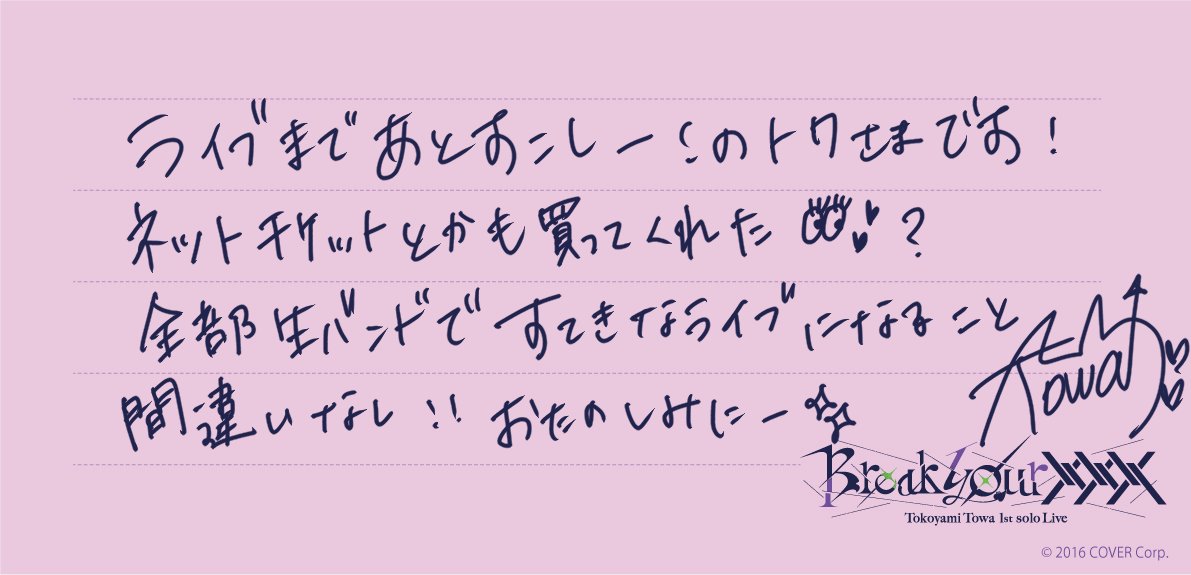 ライブまであとおこしー！のトワさまです！
ネットチケットとかも買ってくれた？
全部生バンドですてきなライブになること
間違いなし!! おたのしみにー
Towa
Break your ××××
Tokoyami Towa 1st solo Live
© 2016 COVER Corp.